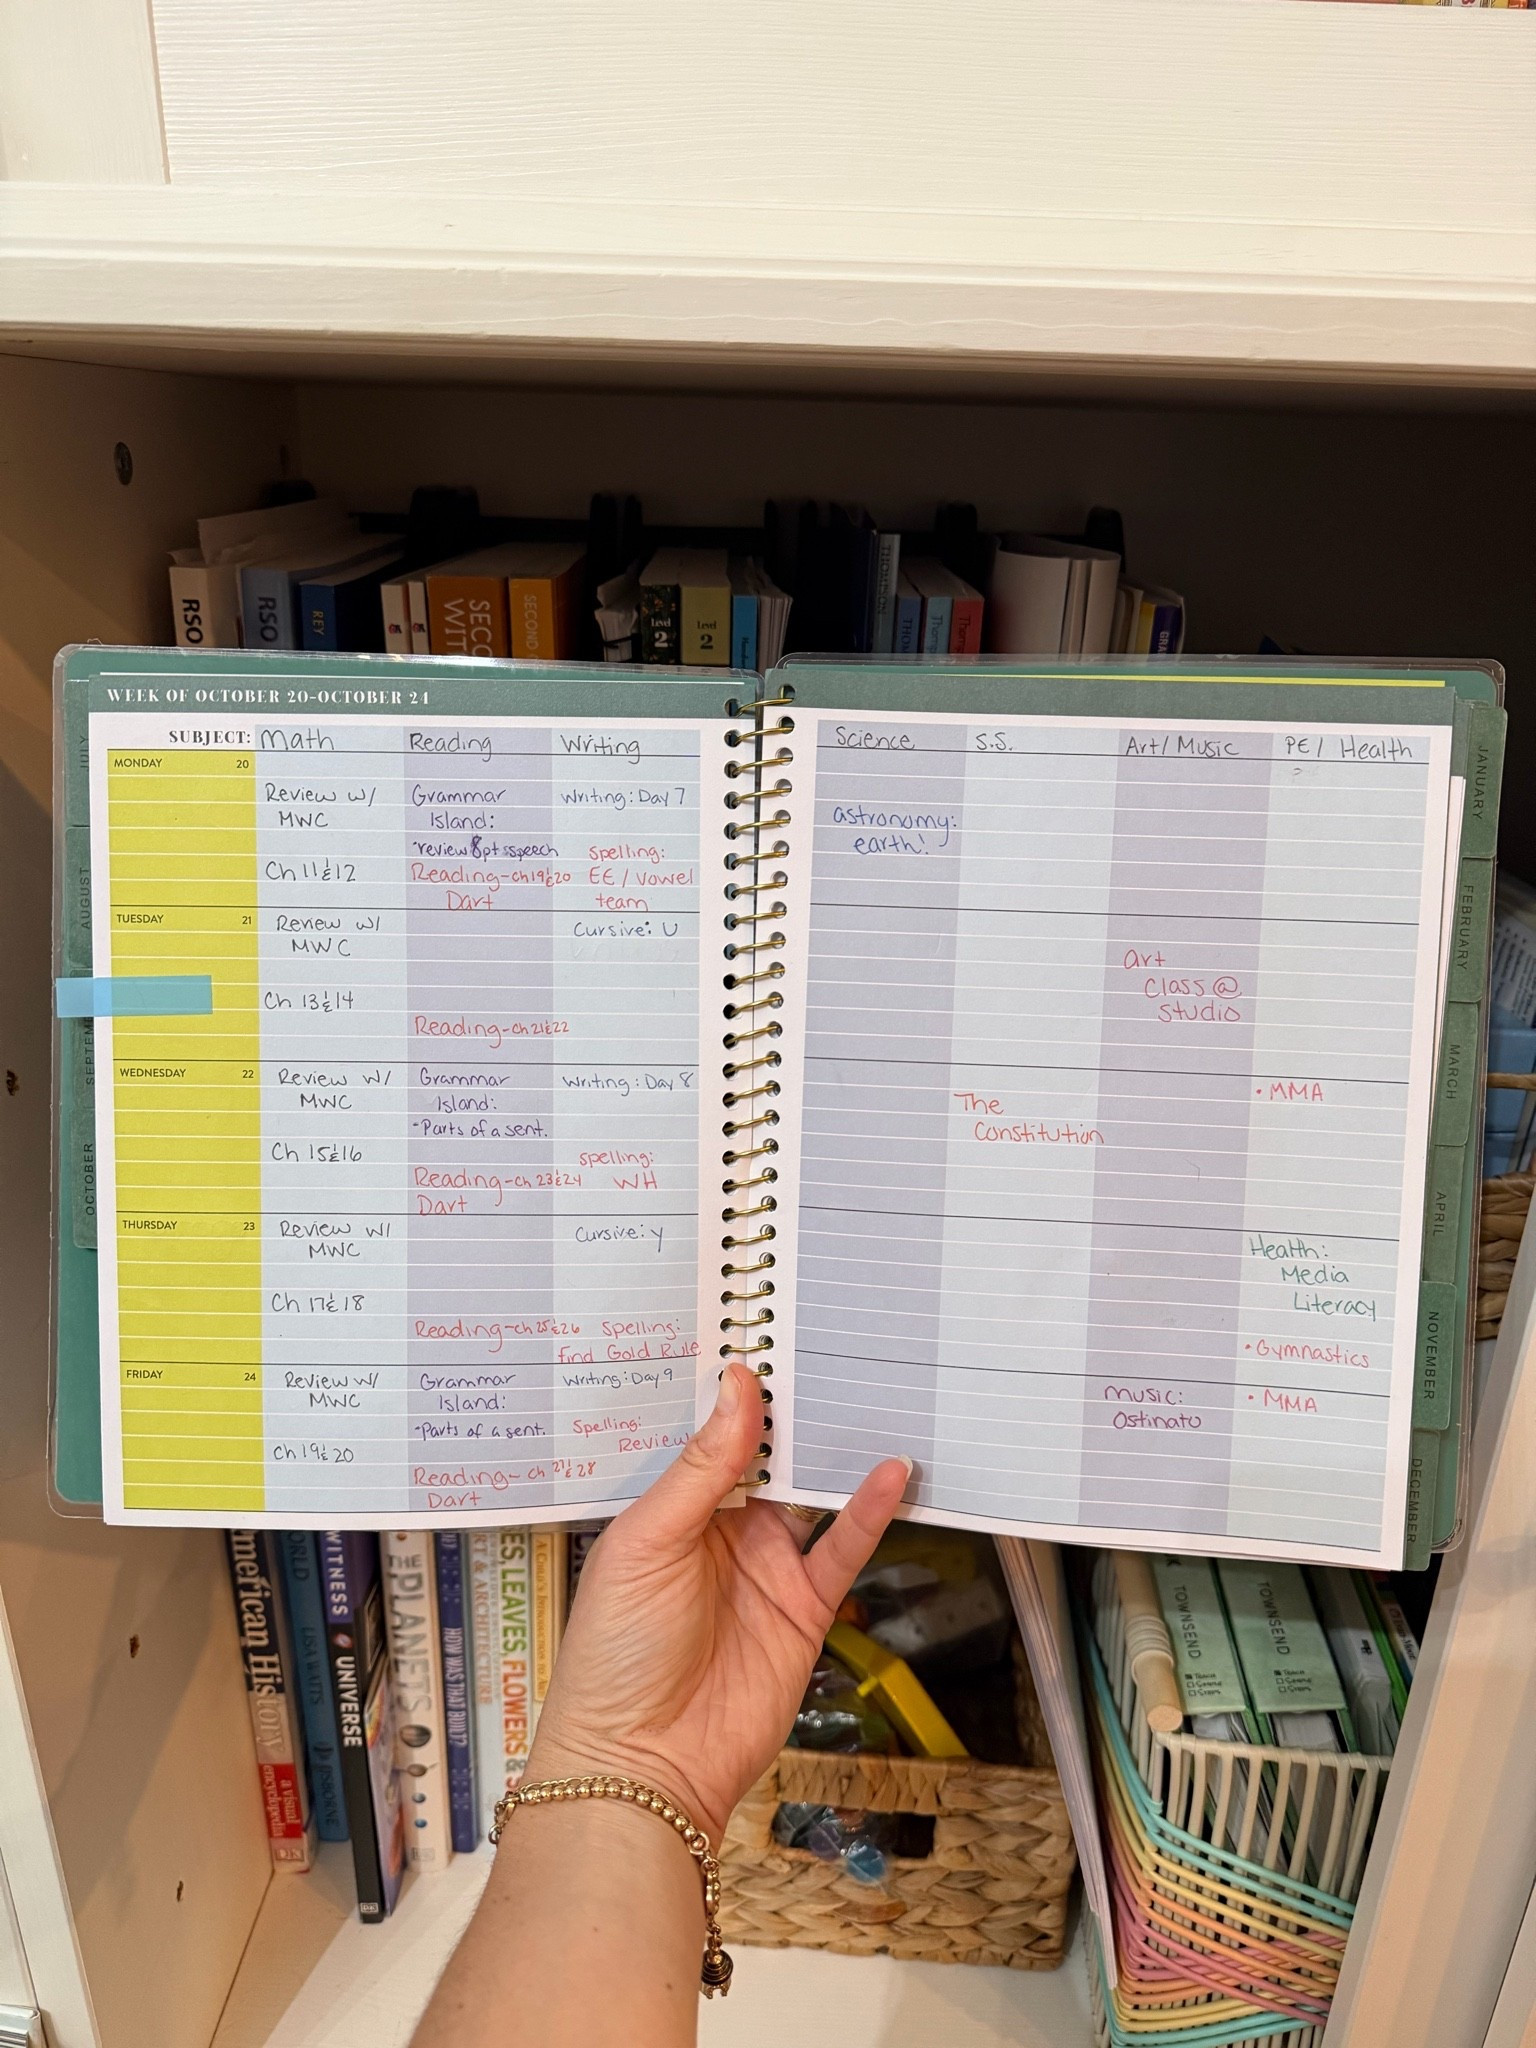 RSO
RSO
REY
SECO
WIT
SECOND
Level
2
Level
2
THOMPSON
GRA
WEEK OF OCTOBER 20-OCTOBER 24
SUBJECT: Math Reading Writing
MONDAY 20
Review w/
MWC
Ch 11 & 12
Grammar
Island:
-review 8 pt speech
Reading-ch 19 & 20
Dart
Writing: Day 7
Spelling:
EE / vowel
team
TUESDAY 21
Review w/
MWC
Ch 13 & 14
Reading-ch 21 & 22
Cursive: U
WEDNESDAY 22
Review w/
MWC
Ch 15 & 16
Grammar
Island:
-Parts of a sent.
Reading-ch 23 & 24
Dart
Writing: Day 8
Spelling:
WH
THURSDAY 23
Review w/
MWC
Ch 17 & 18
Reading-ch 25 & 26
Cursive: y
Spelling:
find Gold Rule
FRIDAY 24
Review w/
MWC
Ch 19 & 20
Grammar
Island:
-Parts of a sent.
Reading- ch 27 & 28
Dart
Writing: Day 9
Spelling:
Review
Science S.S. Art/Music PE/ Health
astronomy:
earth!
art
class @
studio
The
Constitution
• MMA
Health:
Media
Literacy
• Gymnastics
music:
Ostinato
• MMA
JULY
AUGUST
SEPTEM
OCTOBER
JANUARY
FEBRUARY
MARCH
APRIL
NOVEMBER
DECEMBER
American History
a visual
encyclopedia
DK
ORLD
LISA WATTS
USBORNE
WITNESS
UNIVERSE
THE PLANETS
HOW WAS THAT BUILT?
RT & ARCHITECTURE
ES, LEAVES, FLOWERS & S
TOWNSEND
TOWNSEND